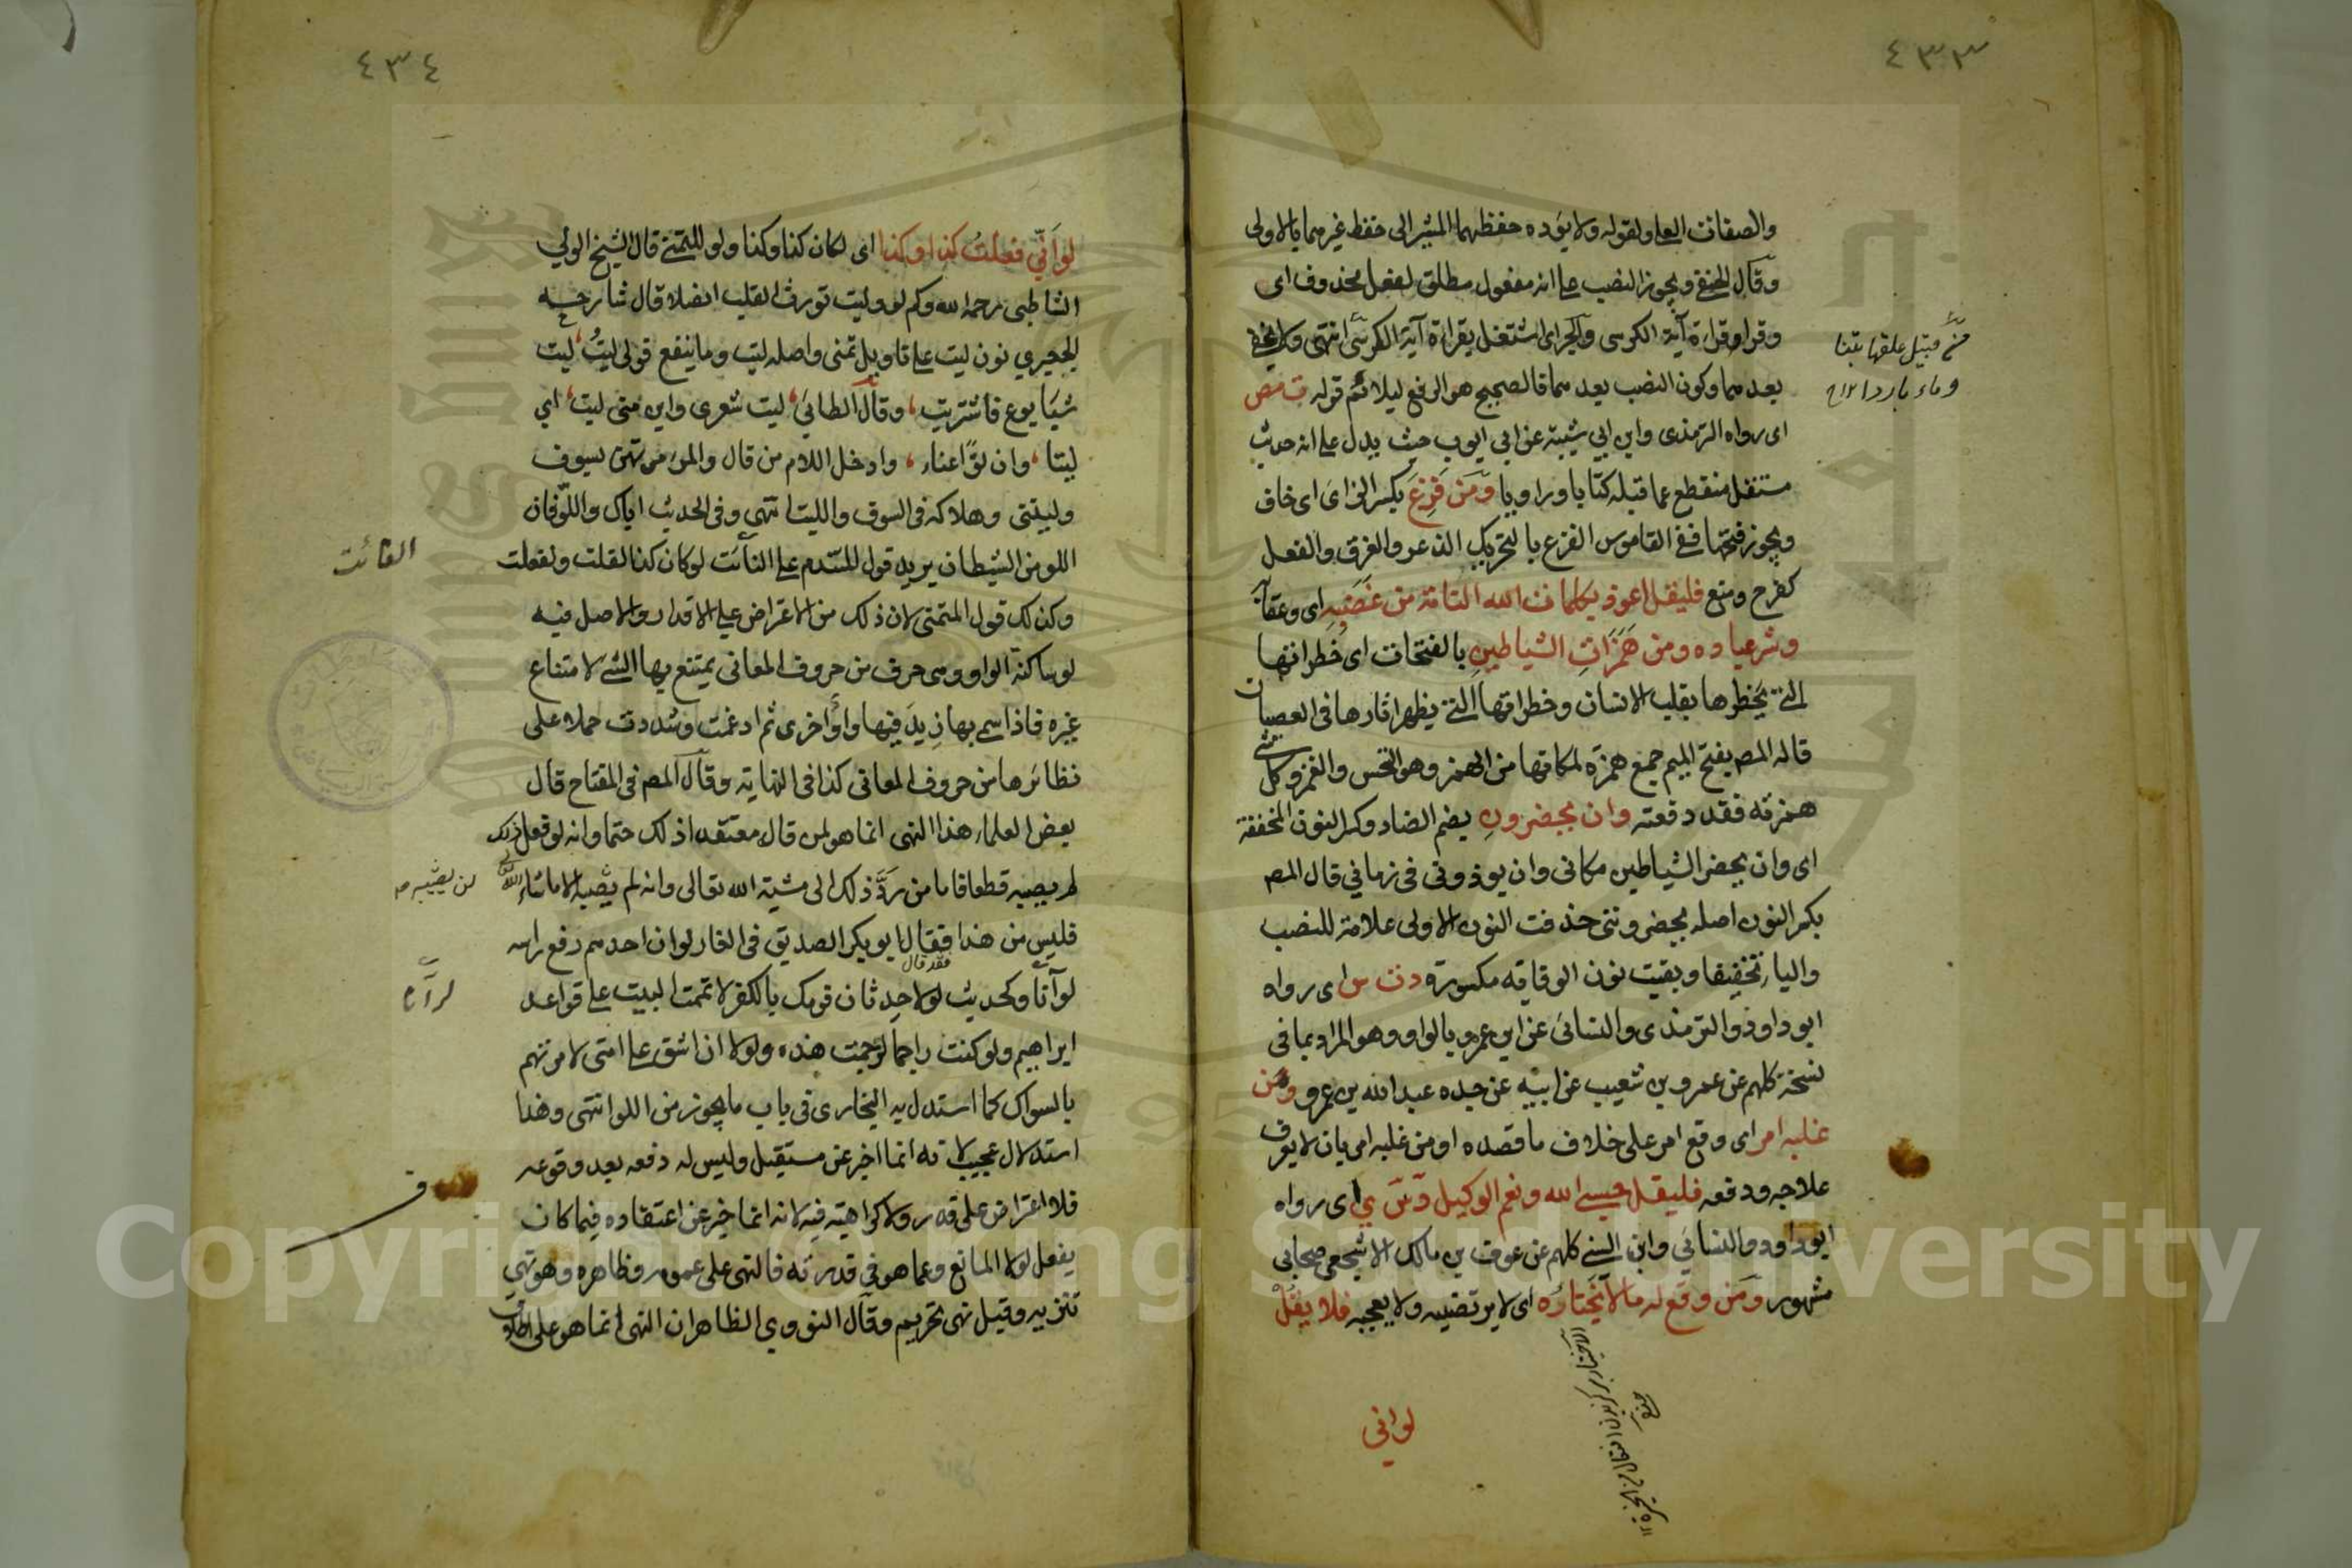 ٤٣٣
والصفات العلى ولقوله ولا يؤده حفظهما المشير الى حفظ غيرهما بالاولى
وقال الحنفي ويجوز النصب على انه مفعول مطلق لفعل محذوف اى
وقرا وقراءة آية الكرسى والجر اى اشتغل بقراءة آية الكرسى انتهى ولا يخفى
بعدهما وكون النصب بعدهما فالصحيح هو الرفع ليلائم قوله ت مص
اى رواه الترمذى وابن ابي شيبة عن ابي ايوب حيث يدل على انه حديث
مستقل منقطع عما قبله كتابا وراويا ومن فزع بكسر الزاى اى خاف
ويجوز فتحها ففي القاموس الفزع بالتحريك الذعر والفرق والفعل
كفرح ومنع فليقل اعوذ بكلمات الله التامة من غضبه اى وعقابه
وشر عباده ومن همزات الشياطين بالفتحات اى خطراتها
التي يخطرها بقلب الانسان وخطراتها التي يظهر اثارها فى العصيان
قاله المص بفتح الميم جمع همزة لمكانها من الهمز وهو النخس والغمز وكل شئ
همزته فقد دفعته وان يحضرون بضم الضاد وكسر النون المخففة
اى وان يحضر الشياطين مكانى وان يوذونى فى زمانى قال المص
بكسر النون اصله يحضروننى حذفت النون الاولى علامة للنصب
والياء تخفيفا وبقيت نون الوقاية مكسورة د ت س اى رواه
ابو داود والترمذى والنسائى عن ابن عمرو بالواو وهو المراد بما فى
نسخة كلهم عن عمرو بن شعيب عن ابيه عن جده عبد الله بن عمرو ومن
غلبه امر اى وقع امر على خلاف ما قصده او من غلبه امر بان لا يعرف
علاجه ودفعه فليقل حسبي الله ونعم الوكيل د س ي اى رواه
ابو داود والنسائي وابن السني كلهم عن عوف بن مالك الاشجعى صحابى
مشهور ومن وقع له ما لا يختاره اى لا يرتضيه ولا يعجبه فلا يقل
لو انى
من قبيل علفتها تبنا
وماء باردا
٤٣٤
لو انى فعلت كذا وكذا اى لكان كذا وكذا ولو للتمني قال الشيخ الولي
الشاطبى رحمه الله وكم لو وليت تورث القلب انصلا قال شارحه
الجعبري نون ليت على تاويل تمنى واصله ليت وما ينفع قولى ليت ليت
شبابا يوع فاشتريت وقال الطائي ليت شعرى واين منى ليت اي
ليتا وان لوا عناء وادخل اللام من قال والمرء مرتهن بسوف
وليتنى وهلاكه فى السوف والليت انتهى وفى الحديث اياك واللو فان
اللو من الشيطان يريد قول المتندم على الفائت لو كان كذا لقلت ولفعلت
وكذلك قول المتمنى لان ذلك من الاعتراض على الاقدار والاصل فيه
لو ساكنة الواو وهى حرف من حروف المعانى يمتنع بها الشئ لامتناع
غيره فاذا سمى بها زيد فيها واو اخرى ثم ادغمت وشددت حملا على
نظائرها من حروف المعانى كذا فى النهاية وقال المص فى المفتاح قال
بعض العلماء هذا النهى انما هو لمن قال معتقدا ذلك حتما وانه لو فعل ذلك
لم يصبه قطعا فاما من رد ذلك الى مشية الله تعالى وانه لم يصبه الا ما شاء الله
فليس من هذا فقال ابو بكر الصديق فى الغار لو ان احدهم رفع راسه
لرآنا وكحديث لولا حدثان قومك بالكفر لاتممت البيت على قواعد
ابراهيم ولو كنت راجما لرجمت هذه ولولا ان اشق على امتى لامرتهم
بالسواك كما استدل به البخارى فى باب ما يجوز من اللو انتهى وهذا
استدلال عجيب لانه انما اخبر عن مستقبل وليس له دفعه بعد وقوعه
فلا اعتراض على قدر ولا كراهية فيه لانه انما اخبر عن اعتقاده فيما كان
يفعل لولا المانع وعما هو فى قدرته فالنهى على عمومه وظاهره وهو نهى
تنزيه وقيل نهى تحريم وقال النووي الظاهر ان النهى انما هو على اطلاق
الفائت
لن يصيبه
لرآنا
فقد قال
Copyright © King Saud University